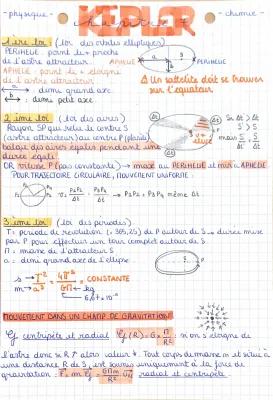 - physique - KEPLER - chimie -
chapitre
1 ère loi (loi des orbites elliptiques)
PERIHELIE : point le + proche
de l'astre attracteur.
APHELIE : point le + éloigné
de l'astre attracteur.
PERIHELIE
APHELIE
a = demi grand axe
b : demi petit axe
⚠ Un satellite doit se trouver
sur l'équateur
2 ième loi (loi des aires)
Rayon SP qui relie le centre S
(astre attracteur) au centre P (planète)
balaye des aires égales pendant une
durée égale
OR vitesse P (pas constante) → max au PERIHELIE et min à APHELIE
POUR TRAJECTOIRE CIRCULAIRE, MOUVEMENT UNIFORME :
P3P4 même Δt
3 ième loi (loi des périodes)
T = période de révolution (≈ 365,25) de P autour de S → durée mise
par P pour effectuer un tour complet autour de S.
M = masse de l'attracteur S
a : demi grand axe de l'ellipse.
s → T²
m → a³
= 4π²
GM
= CONSTANTE
kg
MOUVEMENT DANS UN CHAMP DE GRAVITATION
centripète et radial
si on s'éloigne de
l'astre donc si R ↗ alors valeur ↓. Tout corps de masse m et situé à
une distance R de S, est soumis uniquement à la force de
gravitation :
radial et centripète